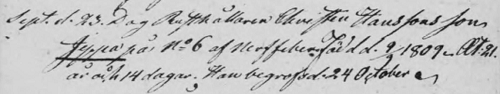 Sept. d. 23. Dog Rusthållaren Christen Hanssons son
Jeppa på No 6 af född d. 9/ 1809. Æt: 21.
år och 14 dagar. Han begrofs d. 24 October